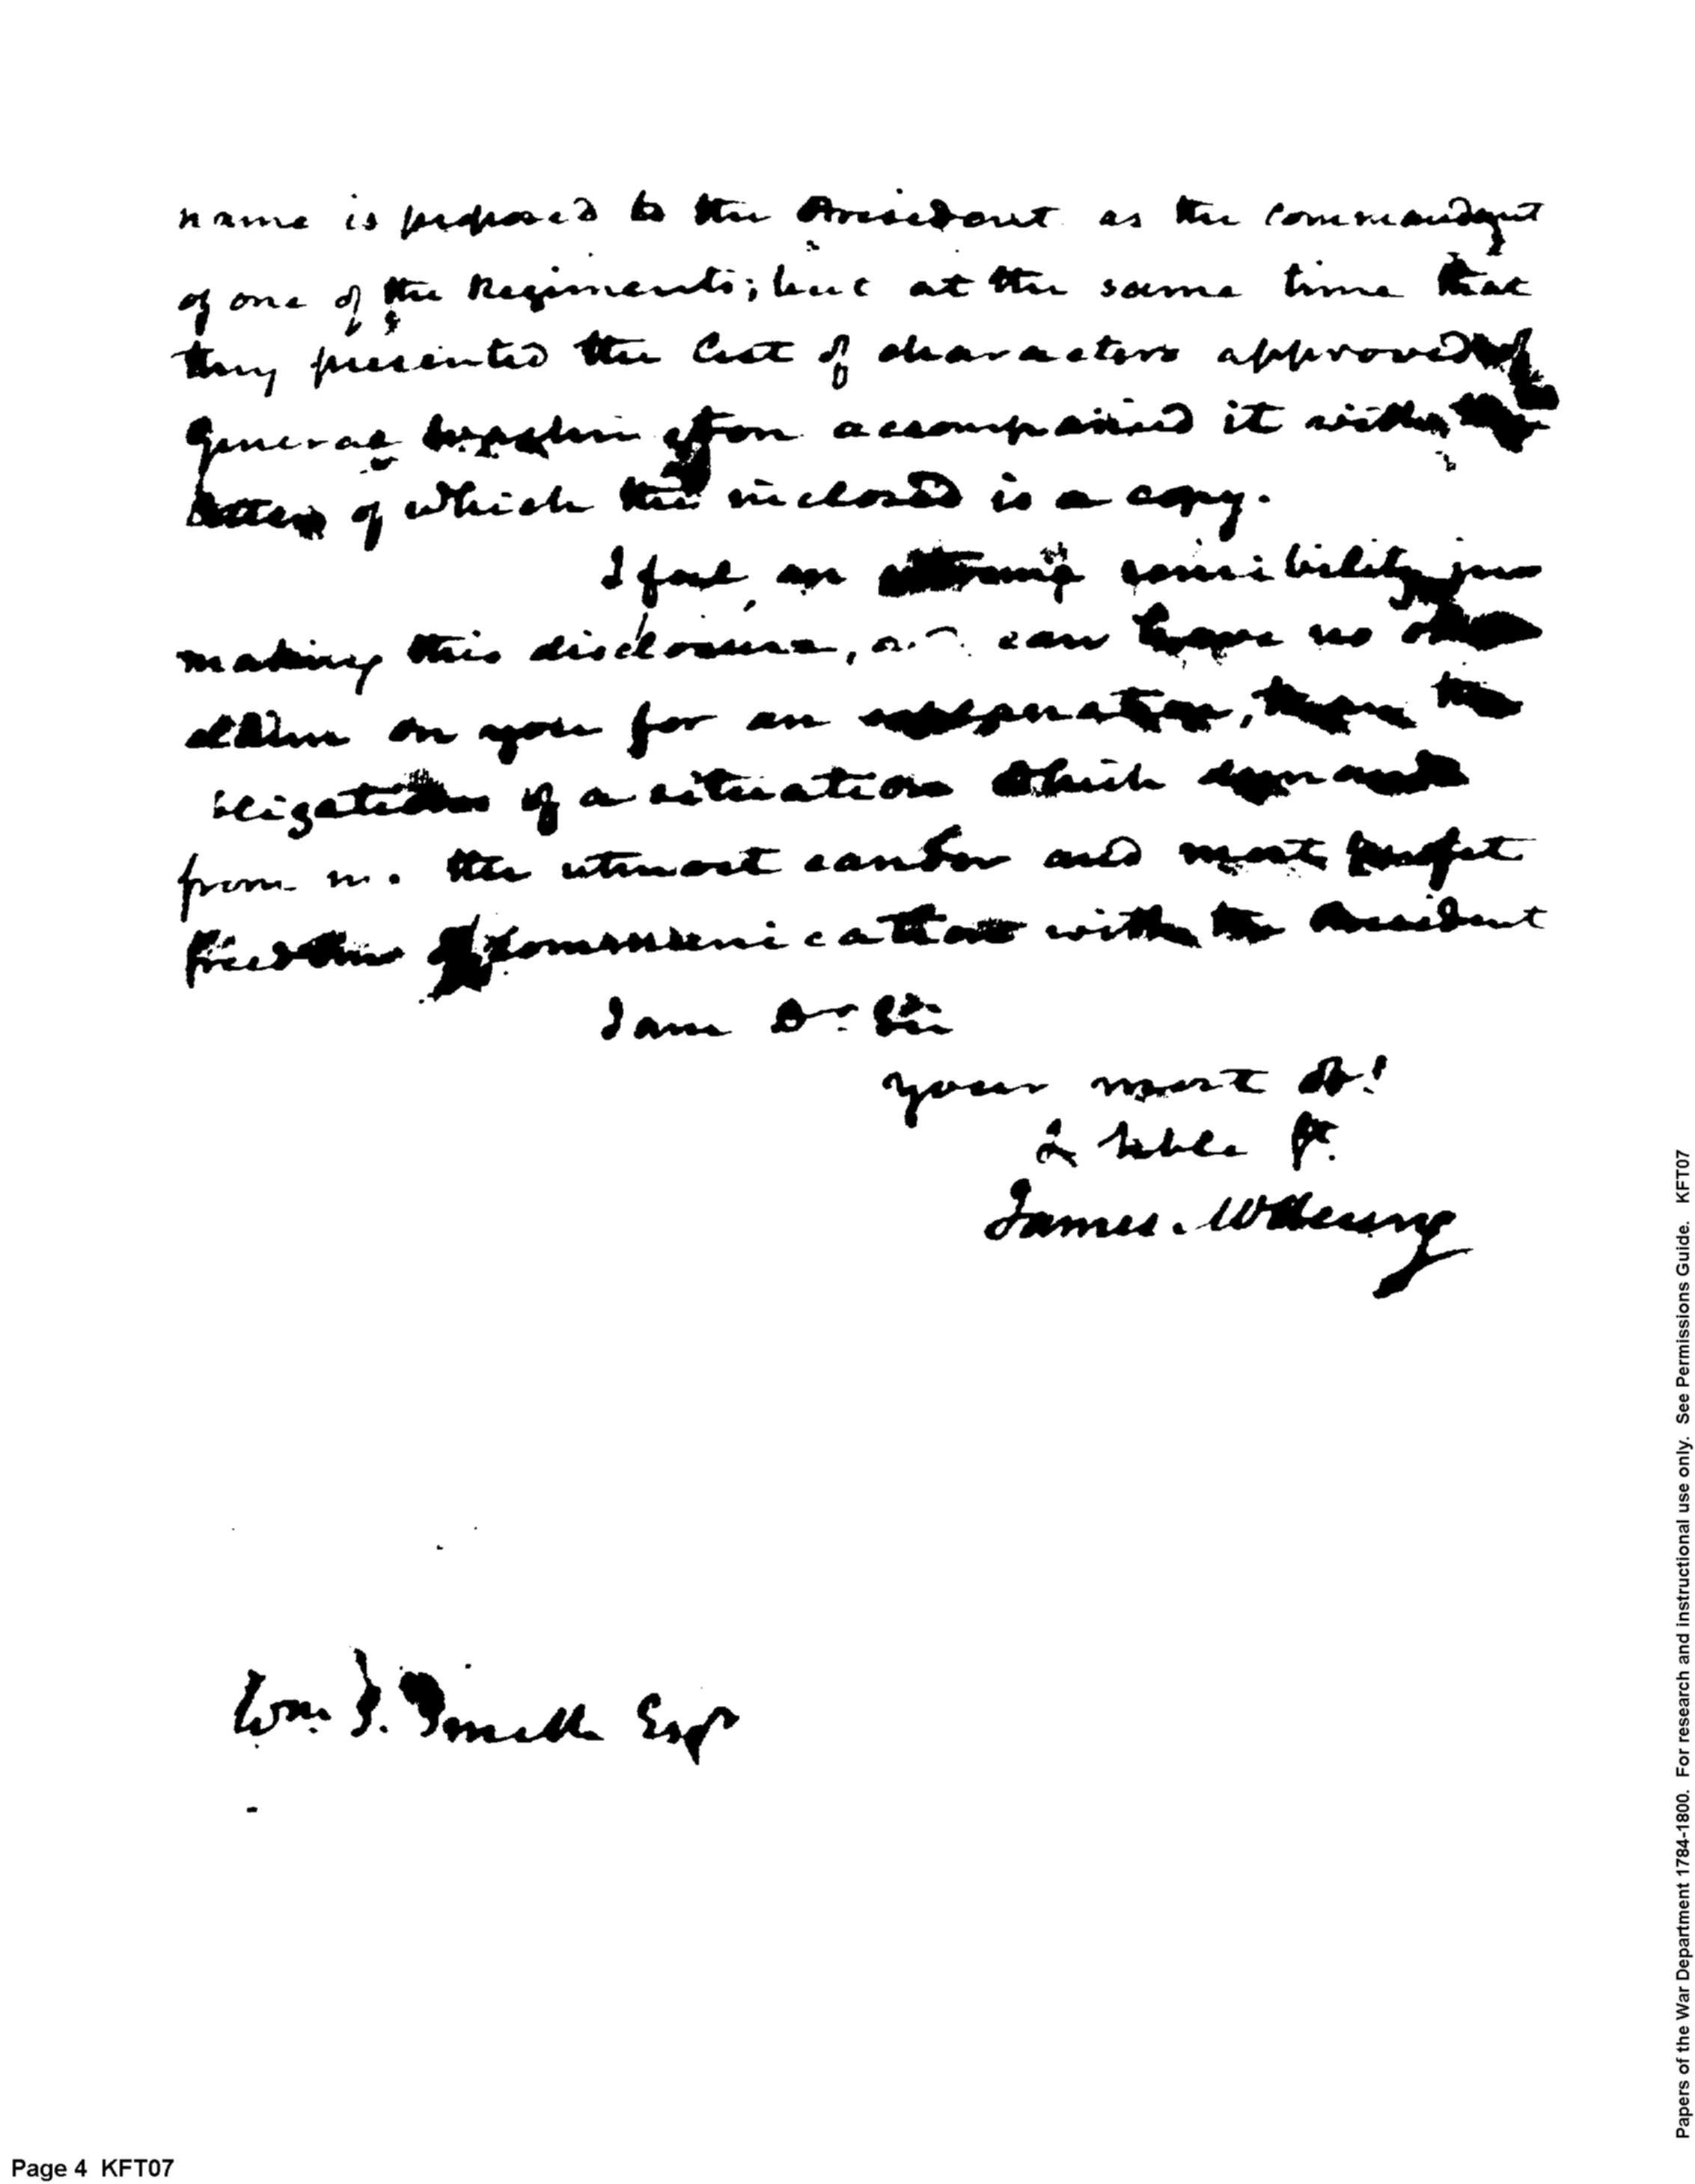 name is proposed to the President as the commandant
of one of the Regiments; but at the same time that
they presented the list of characters approved of
General Washington accompanied it with
letter of which the inclosed is a copy.
I feel an sensibility in
making this disclosure, and can have no
claim on you for an, than the
obligations of a situation which demands
from me the utmost candor and most perfect
freedom of communication with the President
I am Dr. Sir
your most ob!
& hble St.
James McHenry
Wm. S. Smith Esqr
Page 4 KFT07
Papers of the War Department 1784-1800. For research and instructional use only. See Permissions Guide. KFT07